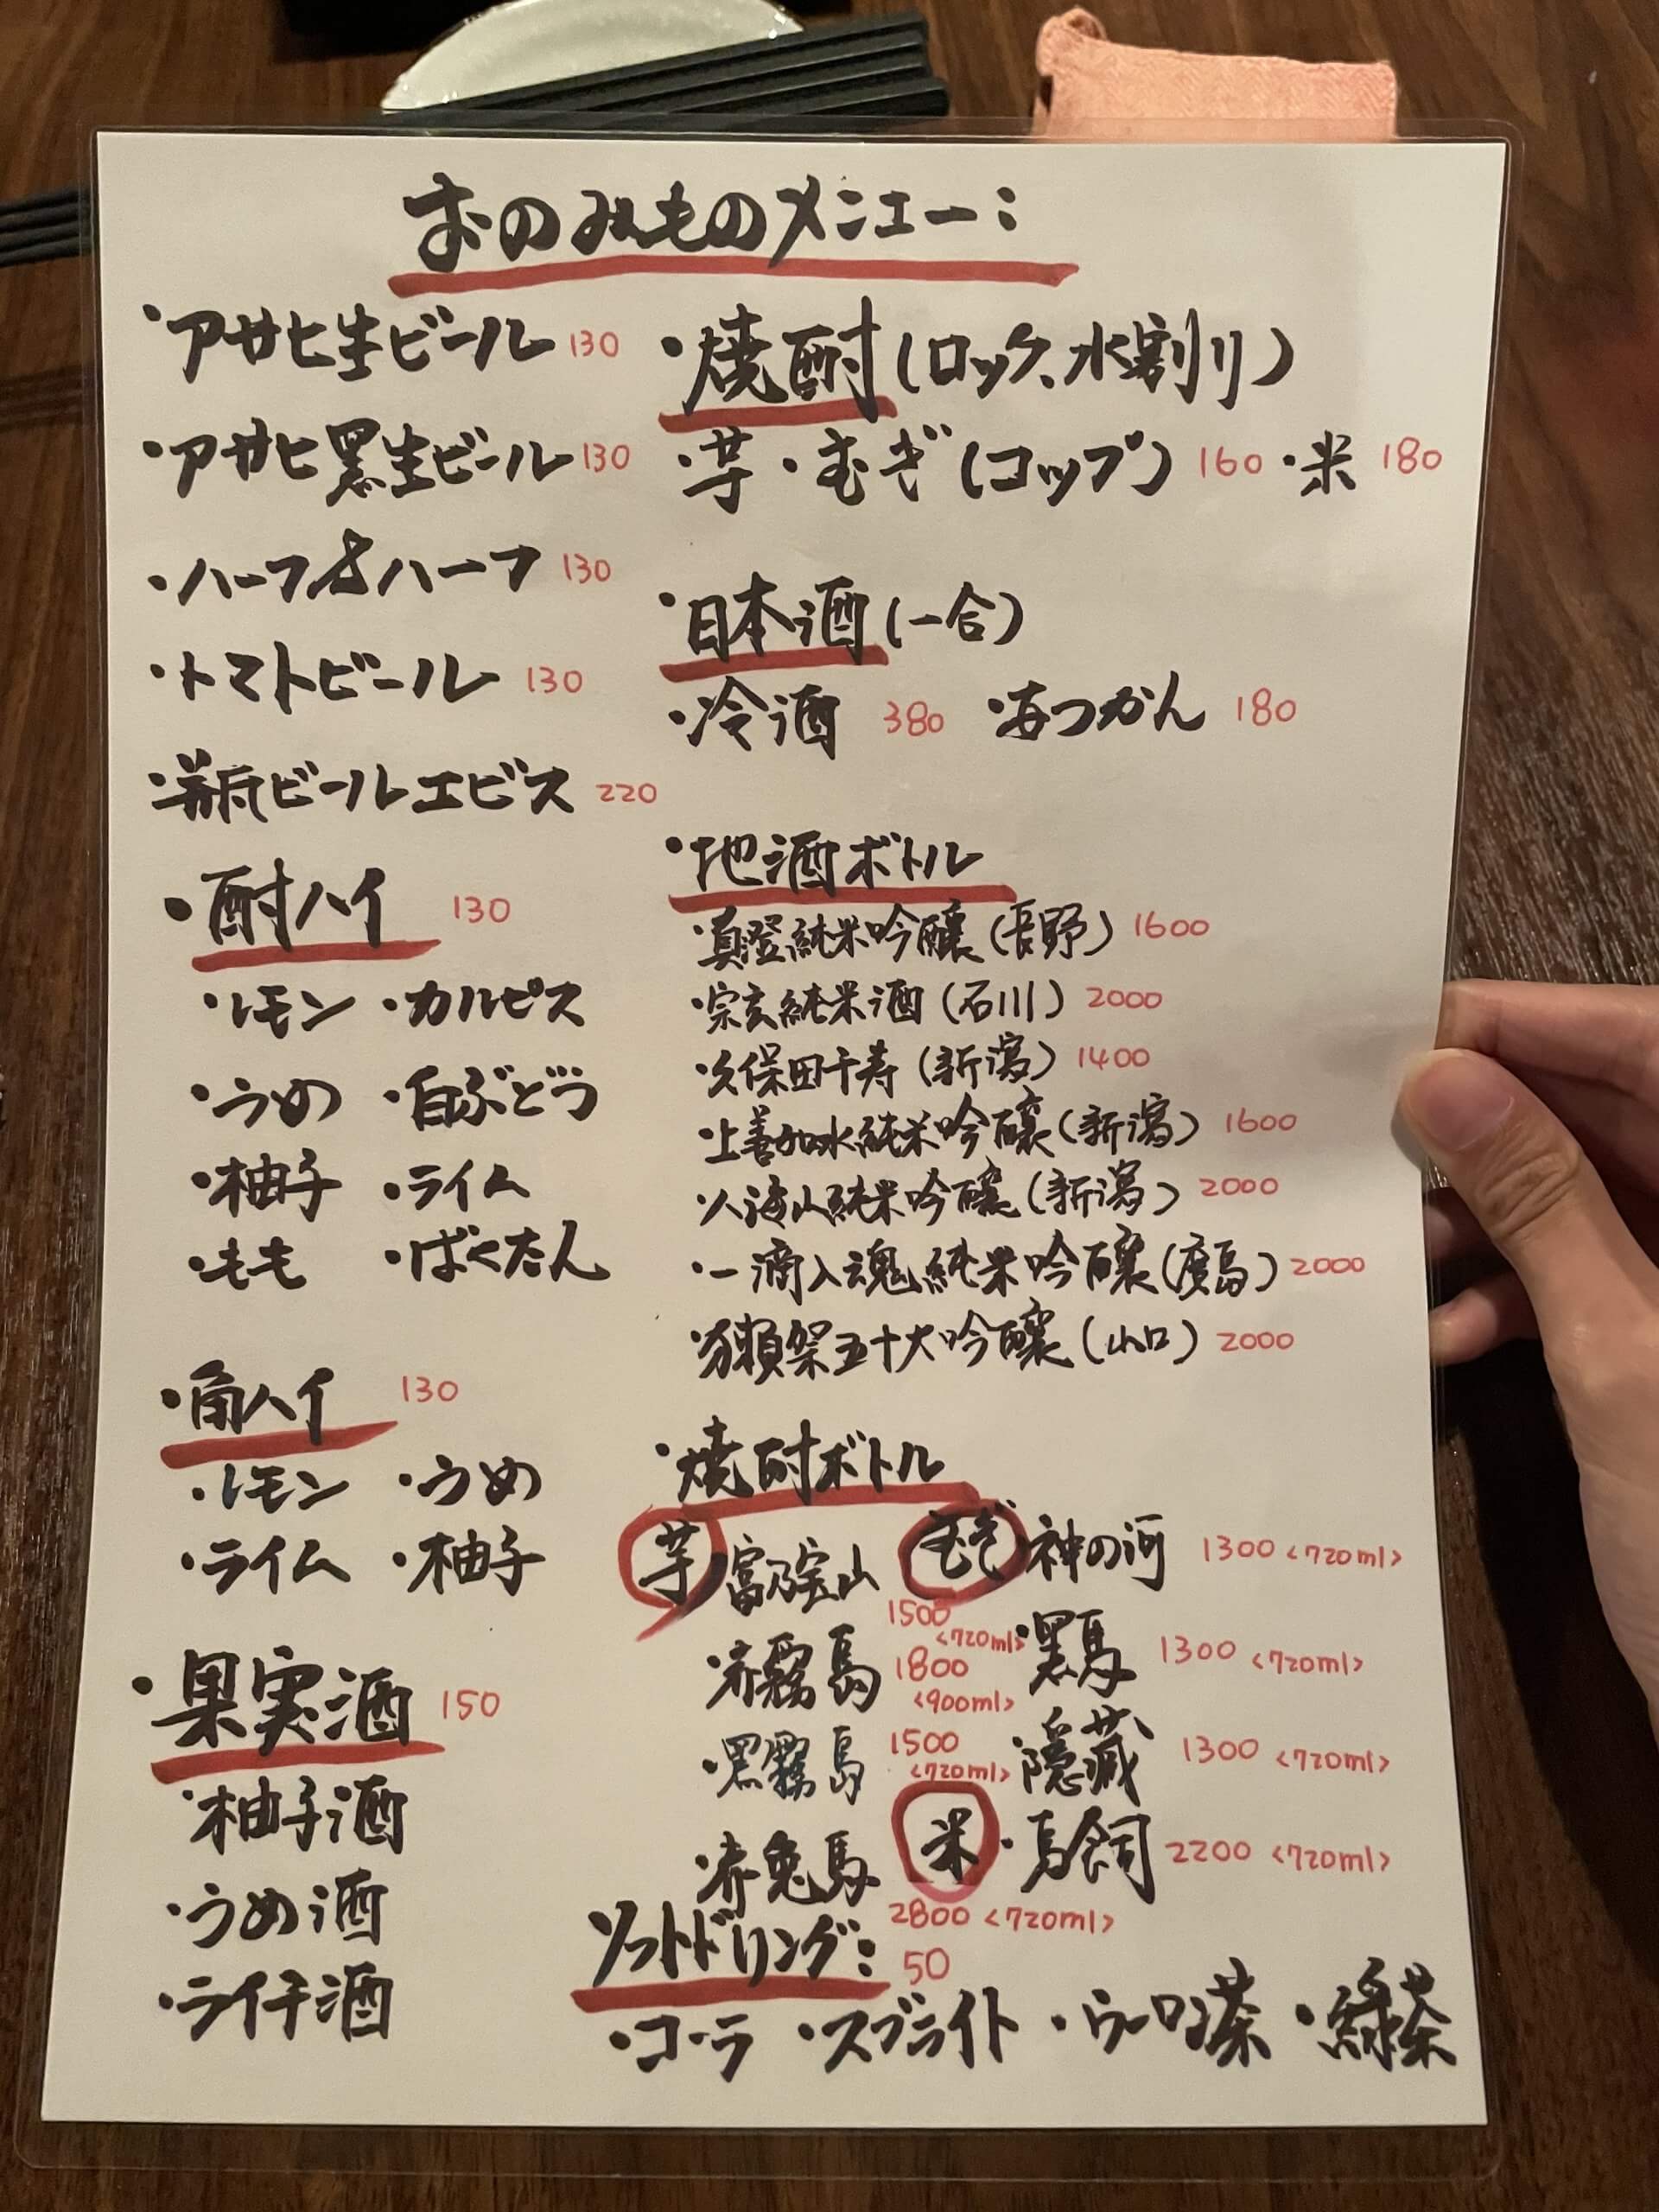 おのみものメニュー:
・アサヒ生ビール 130
・アサヒ黒生ビール 130
・ハーフ&ハーフ 130
・トマトビール 130
・瓶ビールエビス 220
・酎ハイ 130
・レモン ・カルピス
・うめ ・白ぶどう
・柚子 ・ライム
・もも ・ばくだん
・角ハイ 130
・レモン ・うめ
・ライム ・柚子
・果実酒 150
・柚子酒
・うめ酒
・ライチ酒
・焼酎(ロック、水割り)
・芋 ・むぎ(コップ) 160 ・米 180
・日本酒(一合)
・冷酒 380 ・あつかん 180
・地酒ボトル
・真澄純米吟醸(長野) 1600
・宗玄純米酒(石川) 2000
・久保田千寿(新潟) 1400
・上善如水純米吟醸(新潟) 1600
・八海山純米吟醸(新潟) 2000
・一滴入魂純米吟醸(廣島) 2000
・獺祭五十大吟醸(山口) 2000
・焼酎ボトル
芋・富乃宝山 1500 <720ml>
・赤霧島 1800 <900ml>
・黒霧島 1500 <720ml>
・赤兎馬 2800 <720ml>
むぎ 神の河 1300 <720ml>
・黒馬 1300 <720ml>
・隠蔵 1300 <720ml>
米・鳥飼 2200 <720ml>
ソフトドリング: 50
・コーラ ・スプライト ・ウーロン茶 ・緑茶